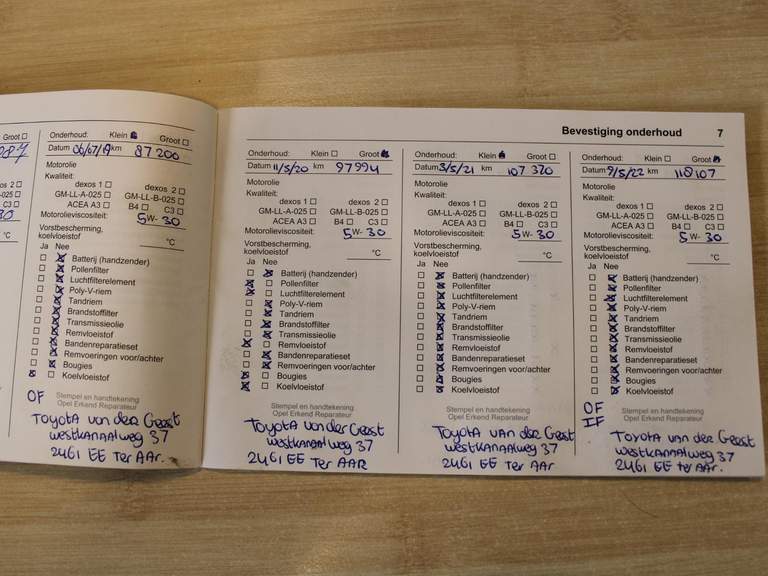 Bevestiging onderhoud 7
Groot
Onderhoud: Klein Groot
Datum 06/07/19 km 87200
Motorolie
Kwaliteit:
dexos 1 dexos 2
GM-LL-A-025 GM-LL-B-025
ACEA A3 B4 C3
Motorolieviscositeit: 5W-30
Vorstbescherming,
koelvloeistof °C
Ja Nee
Batterij (handzender)
Pollenfilter
Luchtfilterelement
Poly-V-riem
Tandriem
Brandstoffilter
Transmissieolie
Remvloeistof
Bandenreparatieset
Remvoeringen voor/achter
Bougies
Koelvloeistof
OF
Stempel en handtekening
Opel Erkend Reparateur
Toyota van der Geest
westkanaalweg 37
2461 EE Ter AAr.
Onderhoud: Klein Groot
Datum 11/5/20 km 97994
Motorolie
Kwaliteit:
dexos 1 dexos 2
GM-LL-A-025 GM-LL-B-025
ACEA A3 B4 C3
Motorolieviscositeit: 5W-30
Vorstbescherming,
koelvloeistof °C
Ja Nee
Batterij (handzender)
Pollenfilter
Luchtfilterelement
Poly-V-riem
Tandriem
Brandstoffilter
Transmissieolie
Remvloeistof
Bandenreparatieset
Remvoeringen voor/achter
Bougies
Koelvloeistof
Stempel en handtekening
Opel Erkend Reparateur
Toyota van der Geest
westkanaalweg 37
2461 EE Ter AAR
Onderhoud: Klein Groot
Datum 3/5/21 km 107 320
Motorolie
Kwaliteit:
dexos 1 dexos 2
GM-LL-A-025 GM-LL-B-025
ACEA A3 B4 C3
Motorolieviscositeit: 5W-30
Vorstbescherming,
koelvloeistof °C
Ja Nee
Batterij (handzender)
Pollenfilter
Luchtfilterelement
Poly-V-riem
Tandriem
Brandstoffilter
Transmissieolie
Remvloeistof
Bandenreparatieset
Remvoeringen voor/achter
Bougies
Koelvloeistof
Stempel en handtekening
Opel Erkend Reparateur
Toyota van der Geest
westkanaalweg 37
2461 EE Ter AAr
Onderhoud: Klein Groot
Datum 9/5/22 km 118107
Motorolie
Kwaliteit:
dexos 1 dexos 2
GM-LL-A-025 GM-LL-B-025
ACEA A3 B4 C3
Motorolieviscositeit: 5W-30
Vorstbescherming,
koelvloeistof °C
Ja Nee
Batterij (handzender)
Pollenfilter
Luchtfilterelement
Poly-V-riem
Tandriem
Brandstoffilter
Transmissieolie
Remvloeistof
Bandenreparatieset
Remvoeringen voor/achter
Bougies
Koelvloeistof
OF
IF
Stempel en handtekening
Opel Erkend Reparateur
Toyota van der Geest
westkanaalweg 37
2461 EE ter AAr.